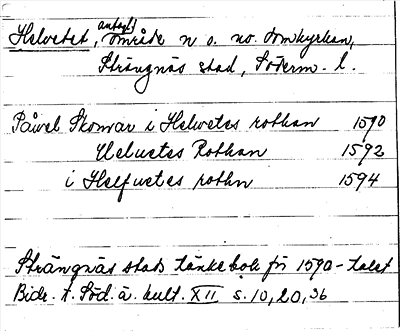 Helvetet, antagl. område n o. no. domkyrkan,
Strängnäs stad, Söderm. l.
Påwel Skomar i Helwetes rothan 1590
Heluetes Rothan 1592
i Helfuetes rothn 1594
Strängnäs stads tänkebok för 1590-talet
Bidr. t. Söd. ä. kult. XII s. 10, 20, 36